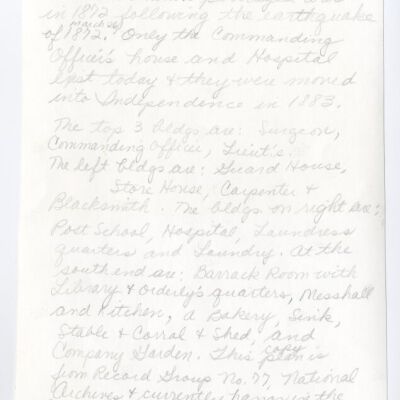 in 1872 following the earthquake
March 26
of 1872. Only the Commanding
Officer's house and Hospital
last today & they were moved
into Independence in 1883.
The top 3 bldgs are: Surgeon,
Commanding Officer, Lieut's.
The left bldgs are: Guard House,
Store House, Carpenter &
Blacksmith. The bldgs on right are:
Post School, Hospital, Laundress
quarters and Laundry. At the
south end are: Barrack Room with
Library & Orderly's quarters, Messhall
and Kitchen, a Bakery, Sink,
Stable & Corral & Shed, and
Company Garden. This plan is
copy
from Record Group No. 77, National
Archives & currently hanging in the